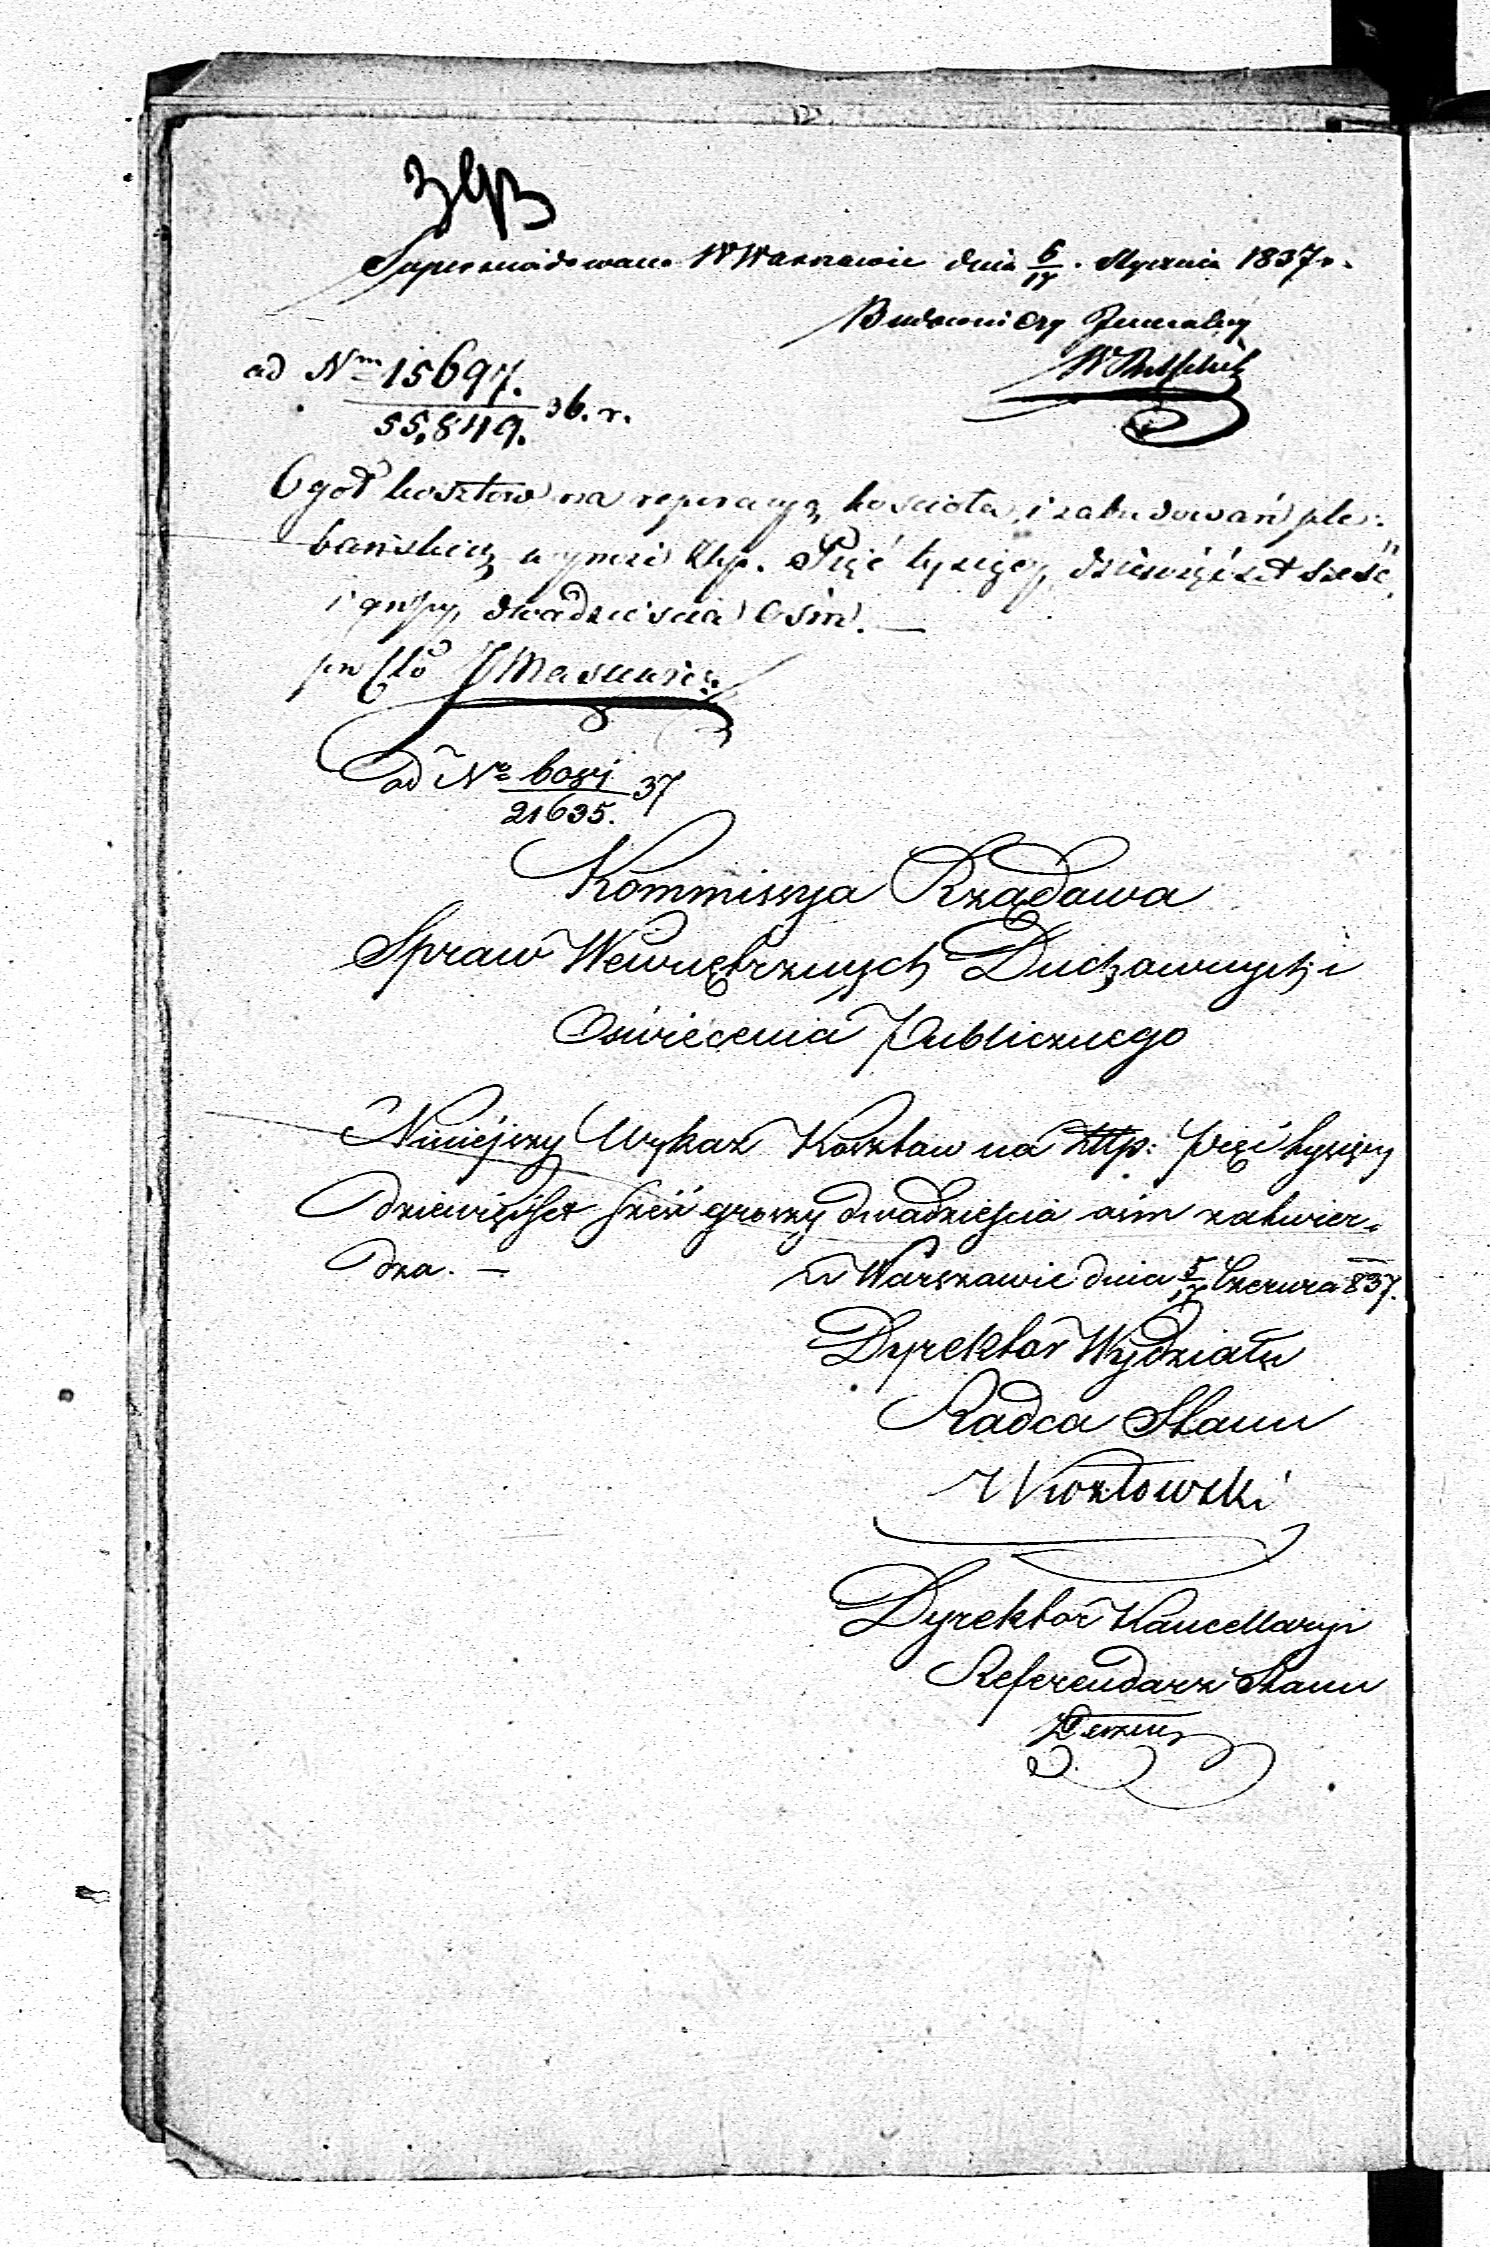 Superrewidowano W Warszawie dnia 5/17. Stycznia 1837 r.
Budowniczy Jeneralny
ad Nrm 15697./55,849. 36. r.
Ogół kosztow na reperacyą kościoła i zabudowań ple:
bańskich wynosi Złtp. Pięć tysięcy dziewięćset sześć
i groszy dwadzieścia Osm. —
ad No /21635. 37
Kommissya Rządowa
Spraw Wewnętrznych Duchownych i
Oświecenia Publicznego
Niniejszy Wykaz Kosztow na Złtp: pięć tysięcy
dziewięćset sześć groszy dwadzieścia osim zatwier=
dza. — w Warszawie dnia 5/17 Czerwca 837.
Dyrektor Wydziału
Radca Stanu
Kozłowski
Dyrektor Kancellaryi
Referendarz Stanu